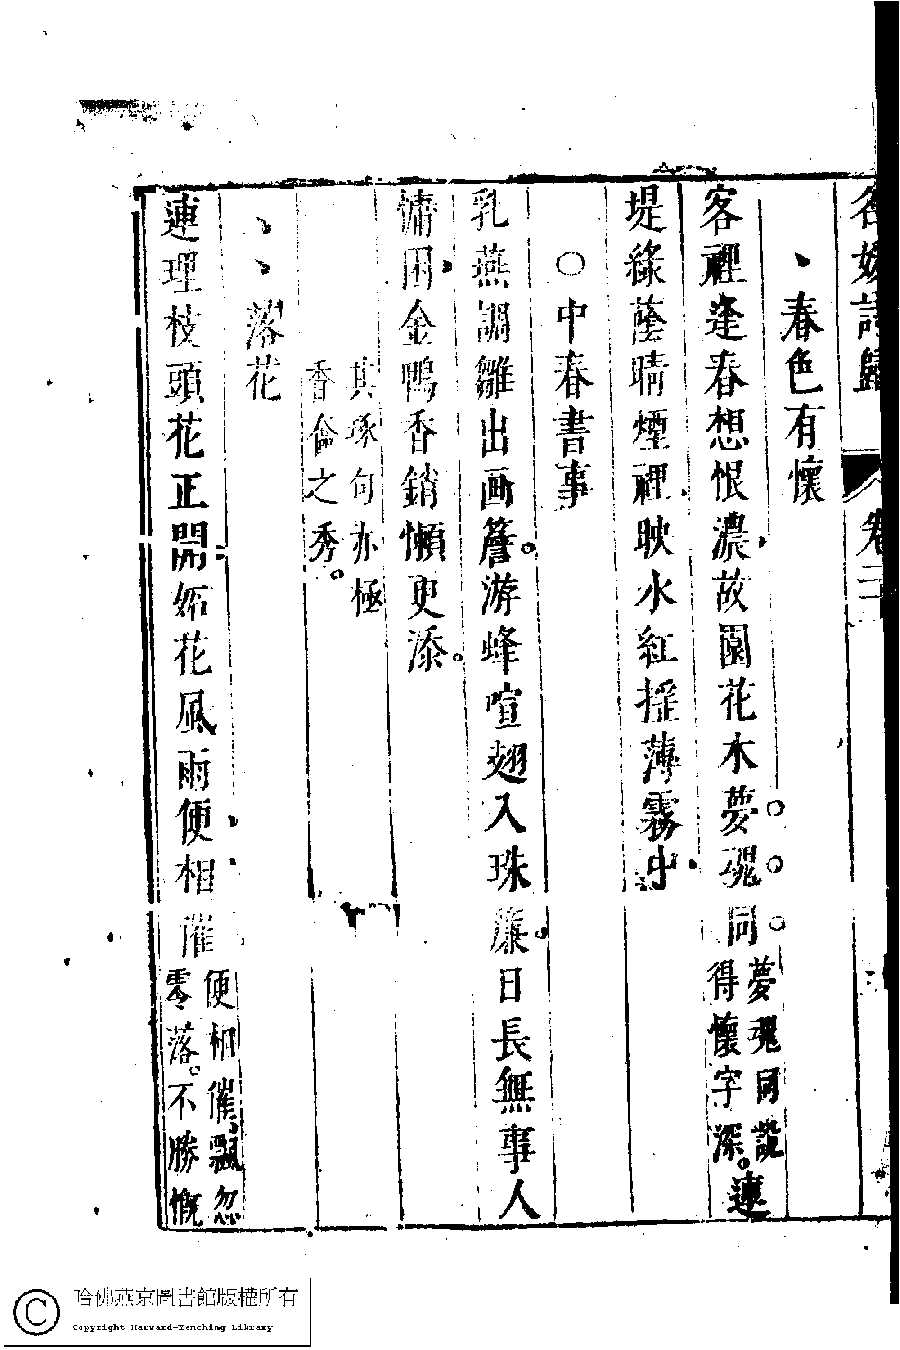 名媛詩歸 卷二
、春色有懷
客裡逢春想恨濃故園花木夢魂同
夢魂同說
得懷字深。
連
堤綠蔭晴煙裡映水紅搖薄霧中
○中春書事
乳燕調雛出画簷。游蜂喧翅入珠簾。日長無事人
慵困金鴨香銷懶更添。
其琢句亦極
香奩之秀。
、、落花
連理枝頭花正開妬花風雨便相催
便相催飄忽
零落。不勝慨
哈佛燕京圖書館版權所有
Copyright Harvard-Yenching Library